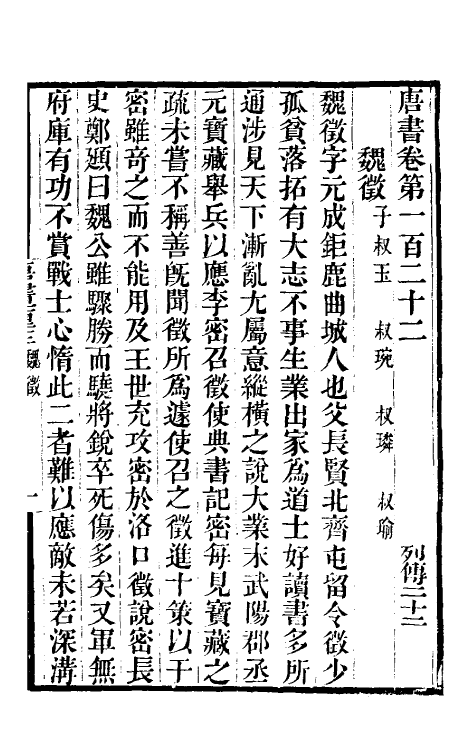 唐書卷第一百二十二　列傳三十二
魏徵　子叔玉　叔琬　叔璘　叔瑜
魏徵字元成鉅鹿曲城人也父長賢北齊屯留令徵少
孤貧落拓有大志不事生業出家爲道士好讀書多所
通涉見天下漸亂尢屬意縱橫之說大業末武陽郡丞
元寶藏舉兵以應李密召徵使典書記密每見寶藏之
疏未嘗不稱善旣聞徵所爲遽使召之徵進十策以干
密雖奇之而不能用及王世充攻密於洛口徵說密長
史鄭頲曰魏公雖驟勝而驍將銳卒死傷多矣又軍無
府庫有功不賞戰士心惰此二者難以應敵未若深溝
魏徵
一